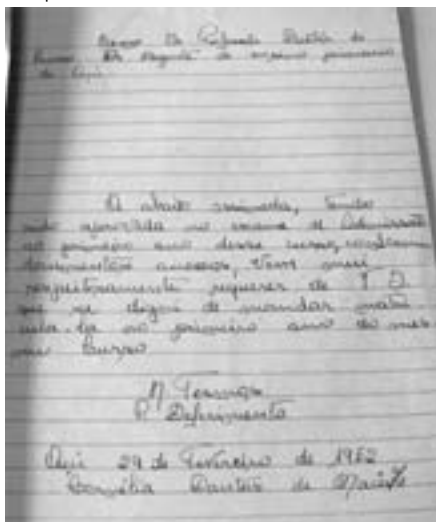 do
Curso de Regente de ensino primário
de Açú.
A abaixo assinada, tendo
sido aprovada no exame de Admissão
ao primeiro ano desse curso,
documentos anexos, vem mui
respeitosamente requerer de V. S.
que se digne de mandar matri
cula-la no primeiro ano do mes
mo Curso
N. Termos
P. Deferimento
Açú 29 de Fevereiro de 1952
Dantas de